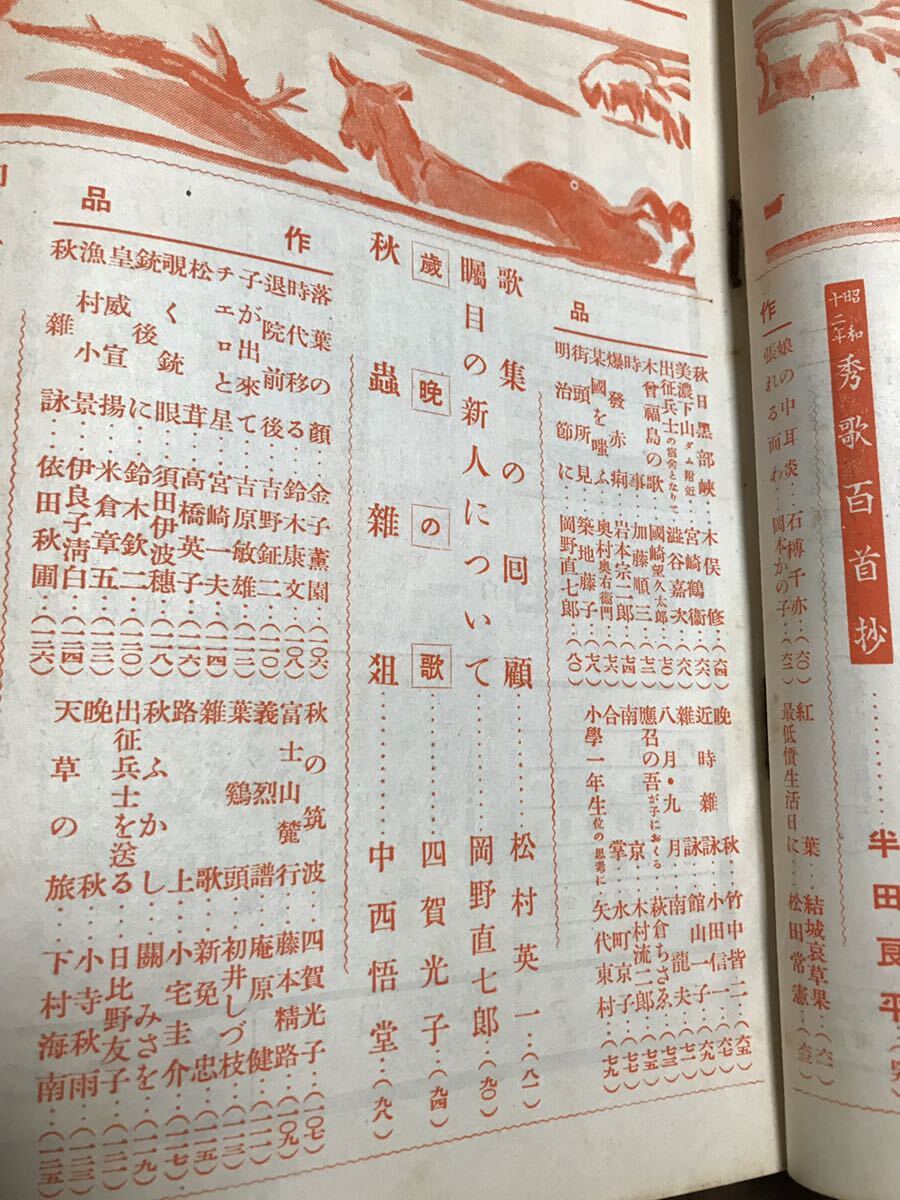 昭和十二年 秀歌百首抄……半田良平
作
娘の中耳炎……石榑千亦(六〇)
張れる面わ……岡本かの子(六二)
紅葉……結城哀草果(六一)
最低價生活日に……松田常憲(六三)
品
秋日黑部峽……木俣修(六四)
美濃下山ダム附近……宮崎鶴衞(六六)
出征兵士の宿舍となりて……澁谷嘉次(六八)
木曾福島の歌……國崎望久太郎(七〇)
時事……加藤順三(七二)
爆發赤痢……岩本宗二郎(七四)
某國を嗤ふ……奥村奥右衞門(七六)
街頭所見……築地藤子(七八)
明治節に……岡野直七郎(八〇)
晩秋……竹中皆二(六五)
近時雜詠……小田信一(六七)
雜詠……館山一子(六九)
八月・九月……南龍夫(七一)
應召の吾が子におくる……萩倉ちさゑ(七三)
南京……木村流二郎(七五)
合掌……水町京子(七七)
小學一年生位の思考に……矢代東村(七九)
歌集の囘顧……松村英一(八一)
矚目の新人について……岡野直七郎(九〇)
歲晩の歌……四賀光子(九四)
秋蟲雜爼……中西悟堂(九八)
作品
落葉の顏……金子薰園(一〇六)
時代移る……鈴木康文(一〇八)
退院前後……吉野鉦二(一一〇)
子が出來て……古原敏雄(一一二)
チエロと星……宮崎一夫(一一四)
松茸……高橋英子(一一六)
覗く銃眼……須田伊波穗(一一八)
銃後に……鈴木欽二(一二〇)
皇威宣揚……米倉章五(一二二)
漁村小景……伊良子淸白(一二四)
秋雜詠……依田秋圃(一二六)
秋の筑波……四賀光子(一〇七)
富士山麓行……藤本精路(一〇九)
義烈譜……庵原健(一一一)
葉鷄頭……初井しづ枝(一一三)
雜歌……新免忠(一一五)
路上……小宅圭介(一一七)
秋ふかし……關みさを(一一九)
出征兵士を送る……日比野友子(一二一)
晩秋……小寺秋雨(一二三)
天草の旅……下村海南(一二五)